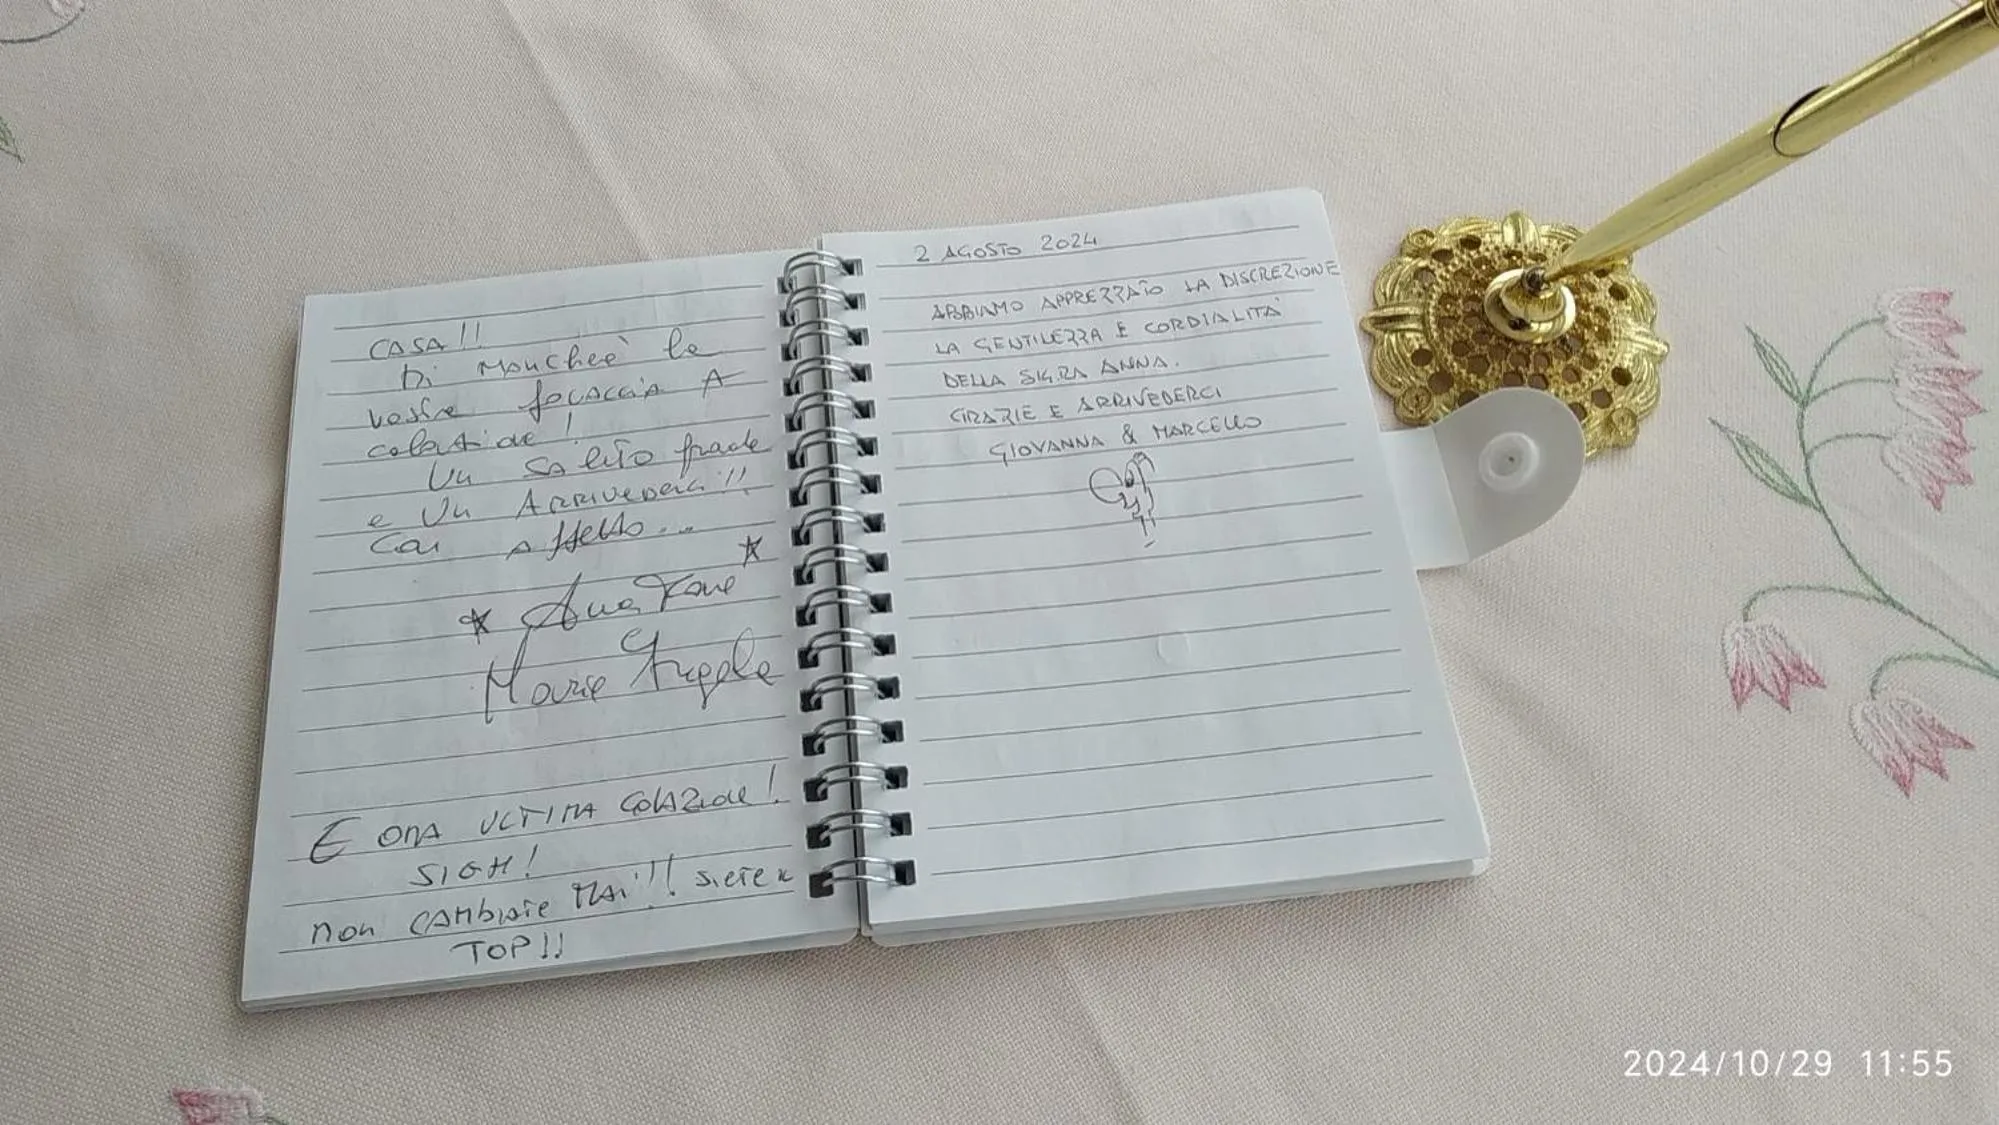 CASA!!
Ci mancheà la
vostra focaccia A
colazione!
Un saluto grande
e un ARRIVEDERCI!!
Con affetto...
Maria Angela
E ORA ULTIMA COLAZIONE!
SIGH!
NON CAMBIATE MAI!!! SIETE
TOP!!
2 AGOSTO 2024
ABBIAMO APPREZZATO LA DISCREZIONE
LA GENTILEZZA E CORDIALITÀ
DELLA SIG.RA ANNA.
GRAZIE E ARRIVEDERCI
GIOVANNA & MARCELLO
2024/10/29 11:55